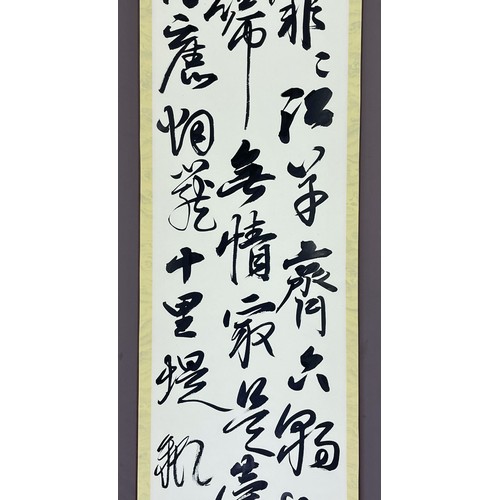 霏〻江草齊六朝
啼無情最是臺
舊烟籠十里堤